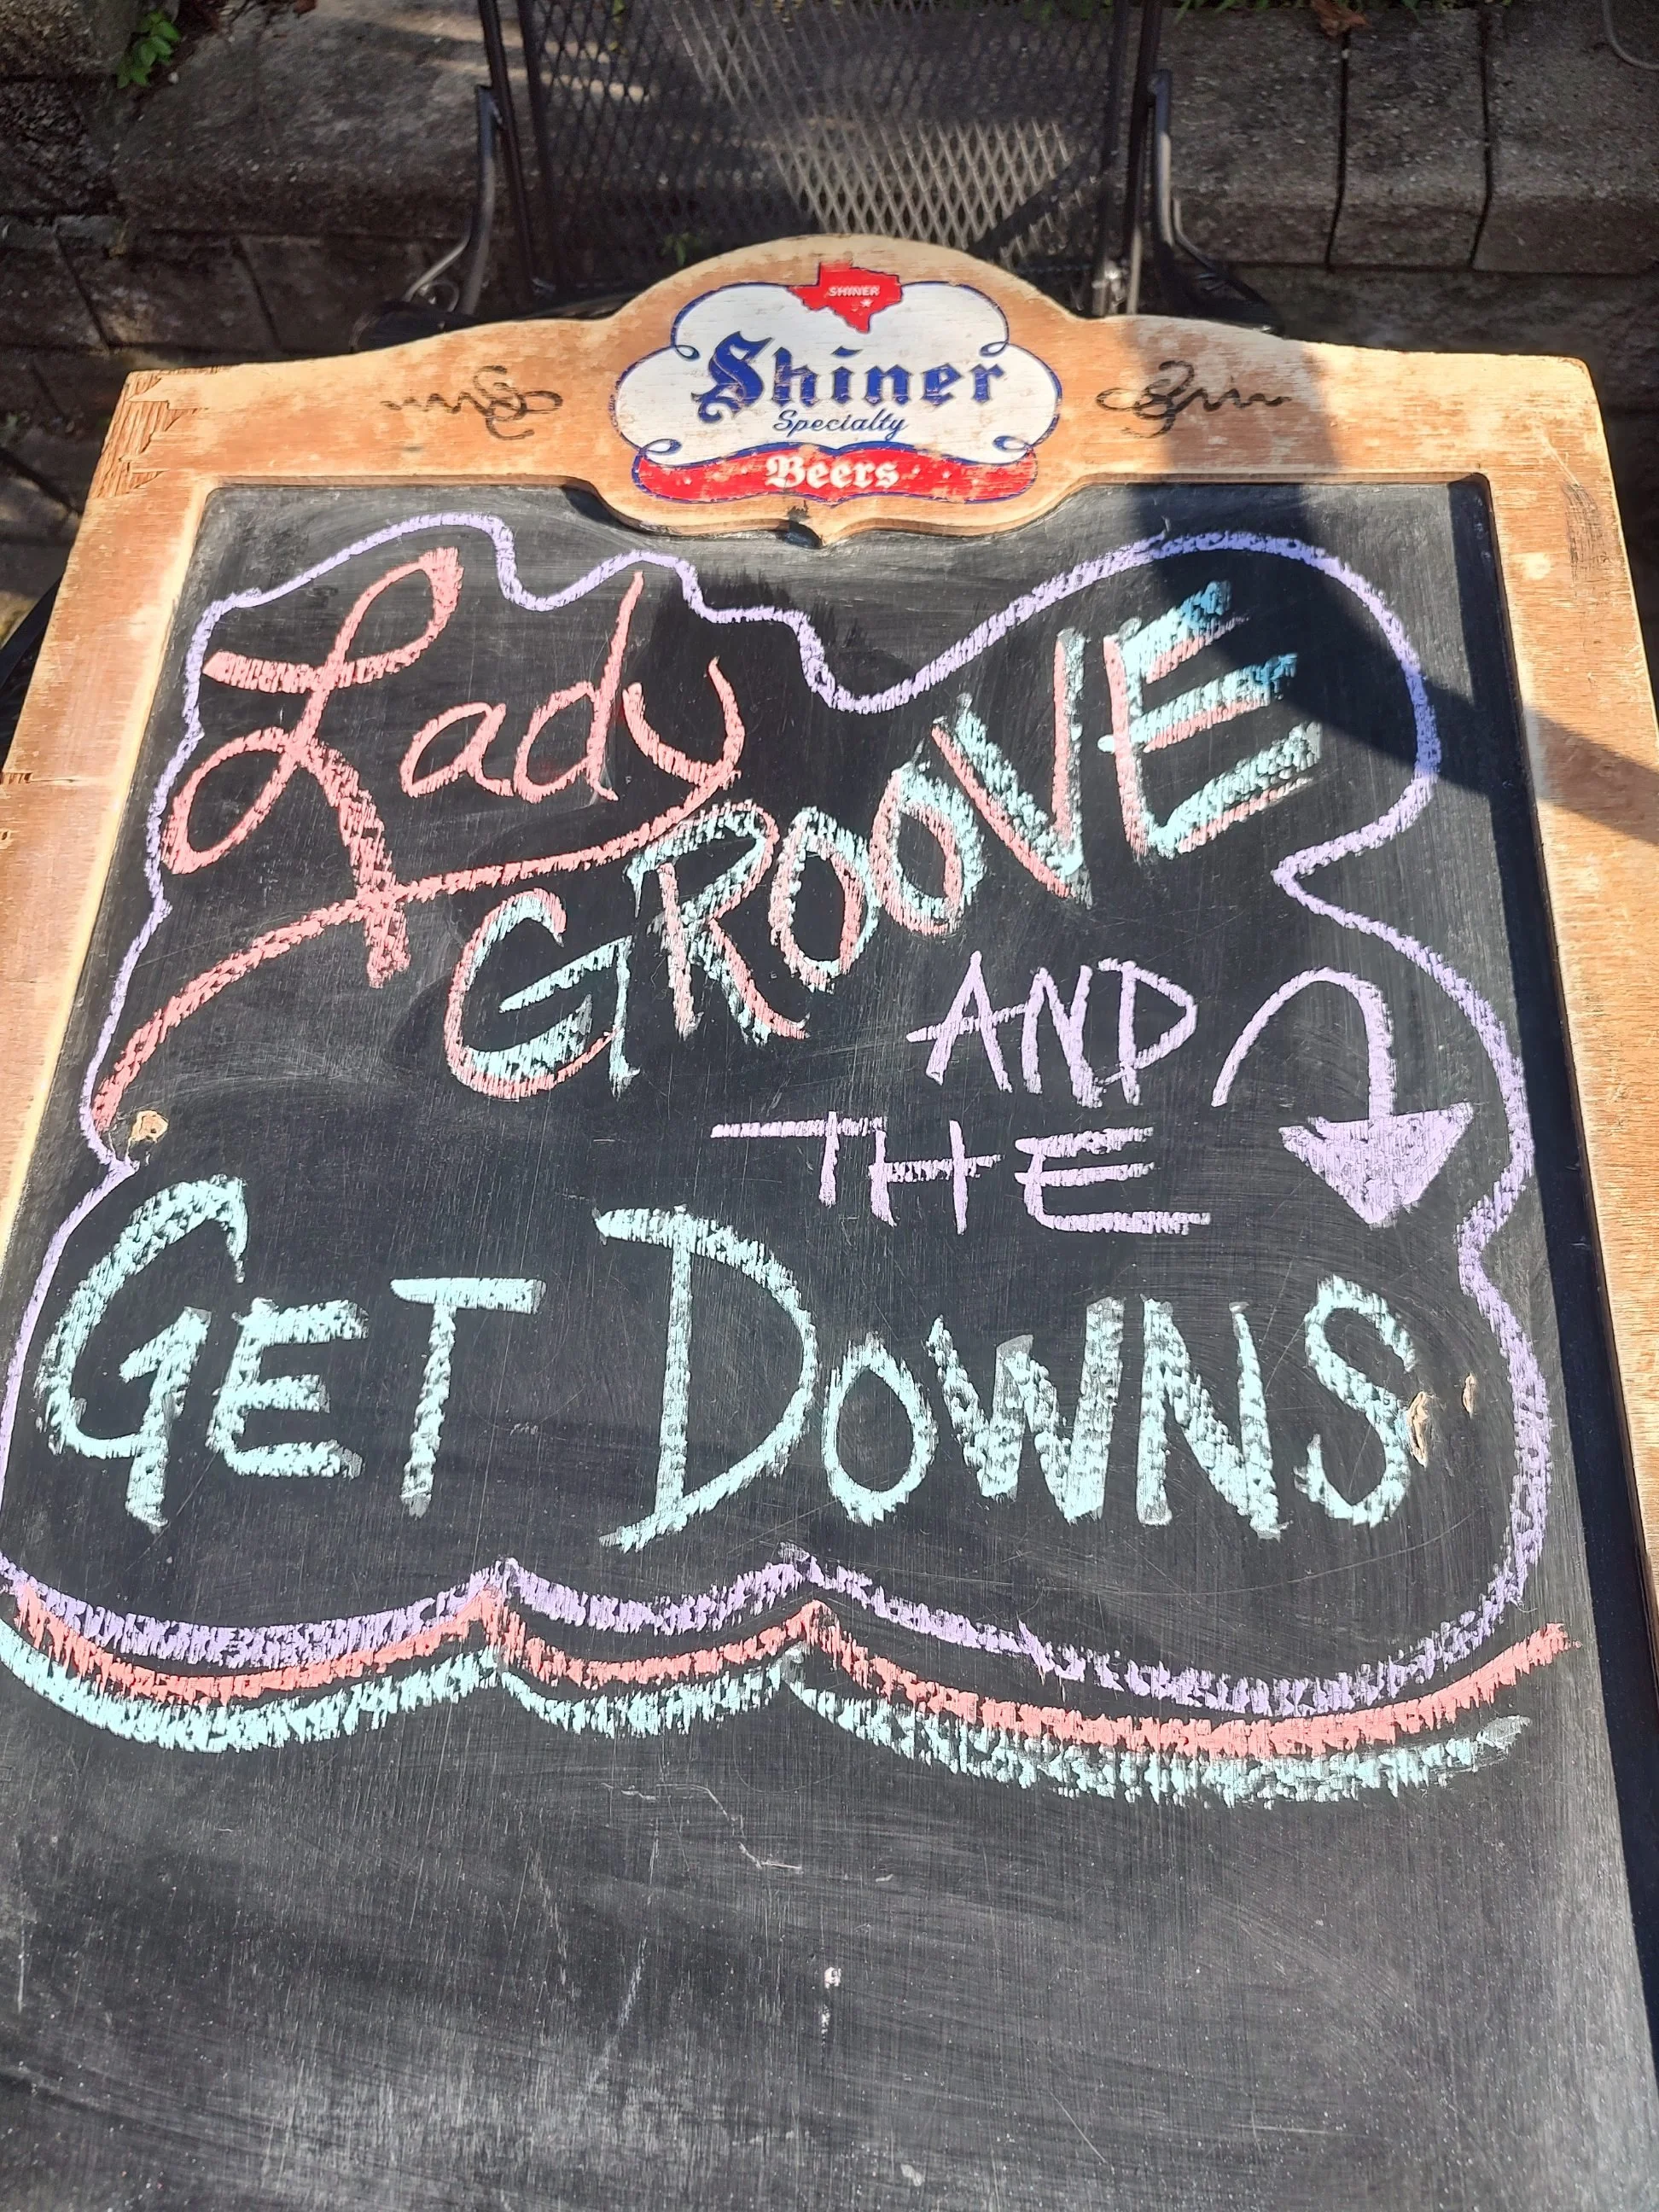 SHINER
Shiner
Specialty
Beers
Lady
GROOVE
AND
THE
GET DOWNS